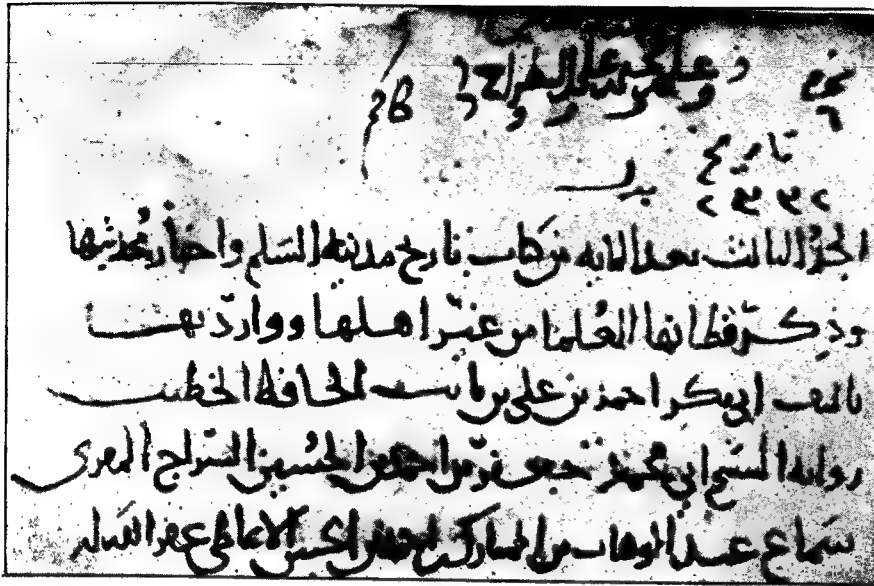 تاريخ
٢٣٣٢
الجزء الثالث بعد المايه من كتاب تاريخ مدينة السلم واخبار محدثيها
وذكر قطانها العلما من غير اهلها وواردیها
تاليف ابي بكر احمد بن علي بن ثابت الحافظ الخطيب
روايه الشيخ ابي محمد جعفر بن احمد بن الحسين السراج المقرى
سماع عبد الوهاب بن المبارك بن احمد بن الحسن الانماطي غفر الله له